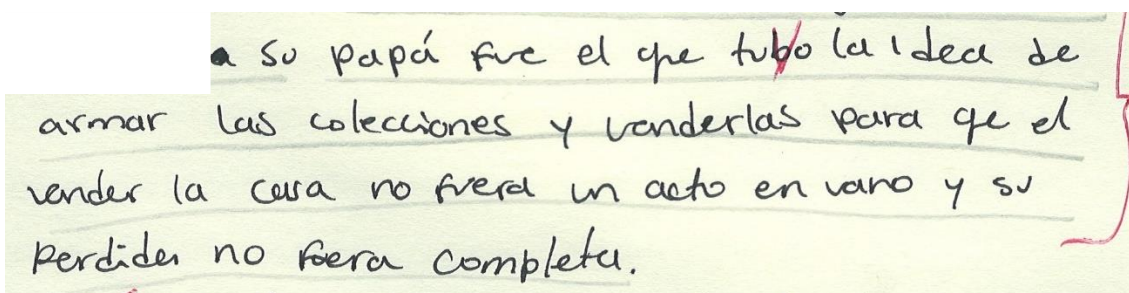 a su papá fue el que tubo la idea de
armar las colecciones y venderlas para qe el
vender la casa no fuera un acto en vano y su
perdida no fuera completa.